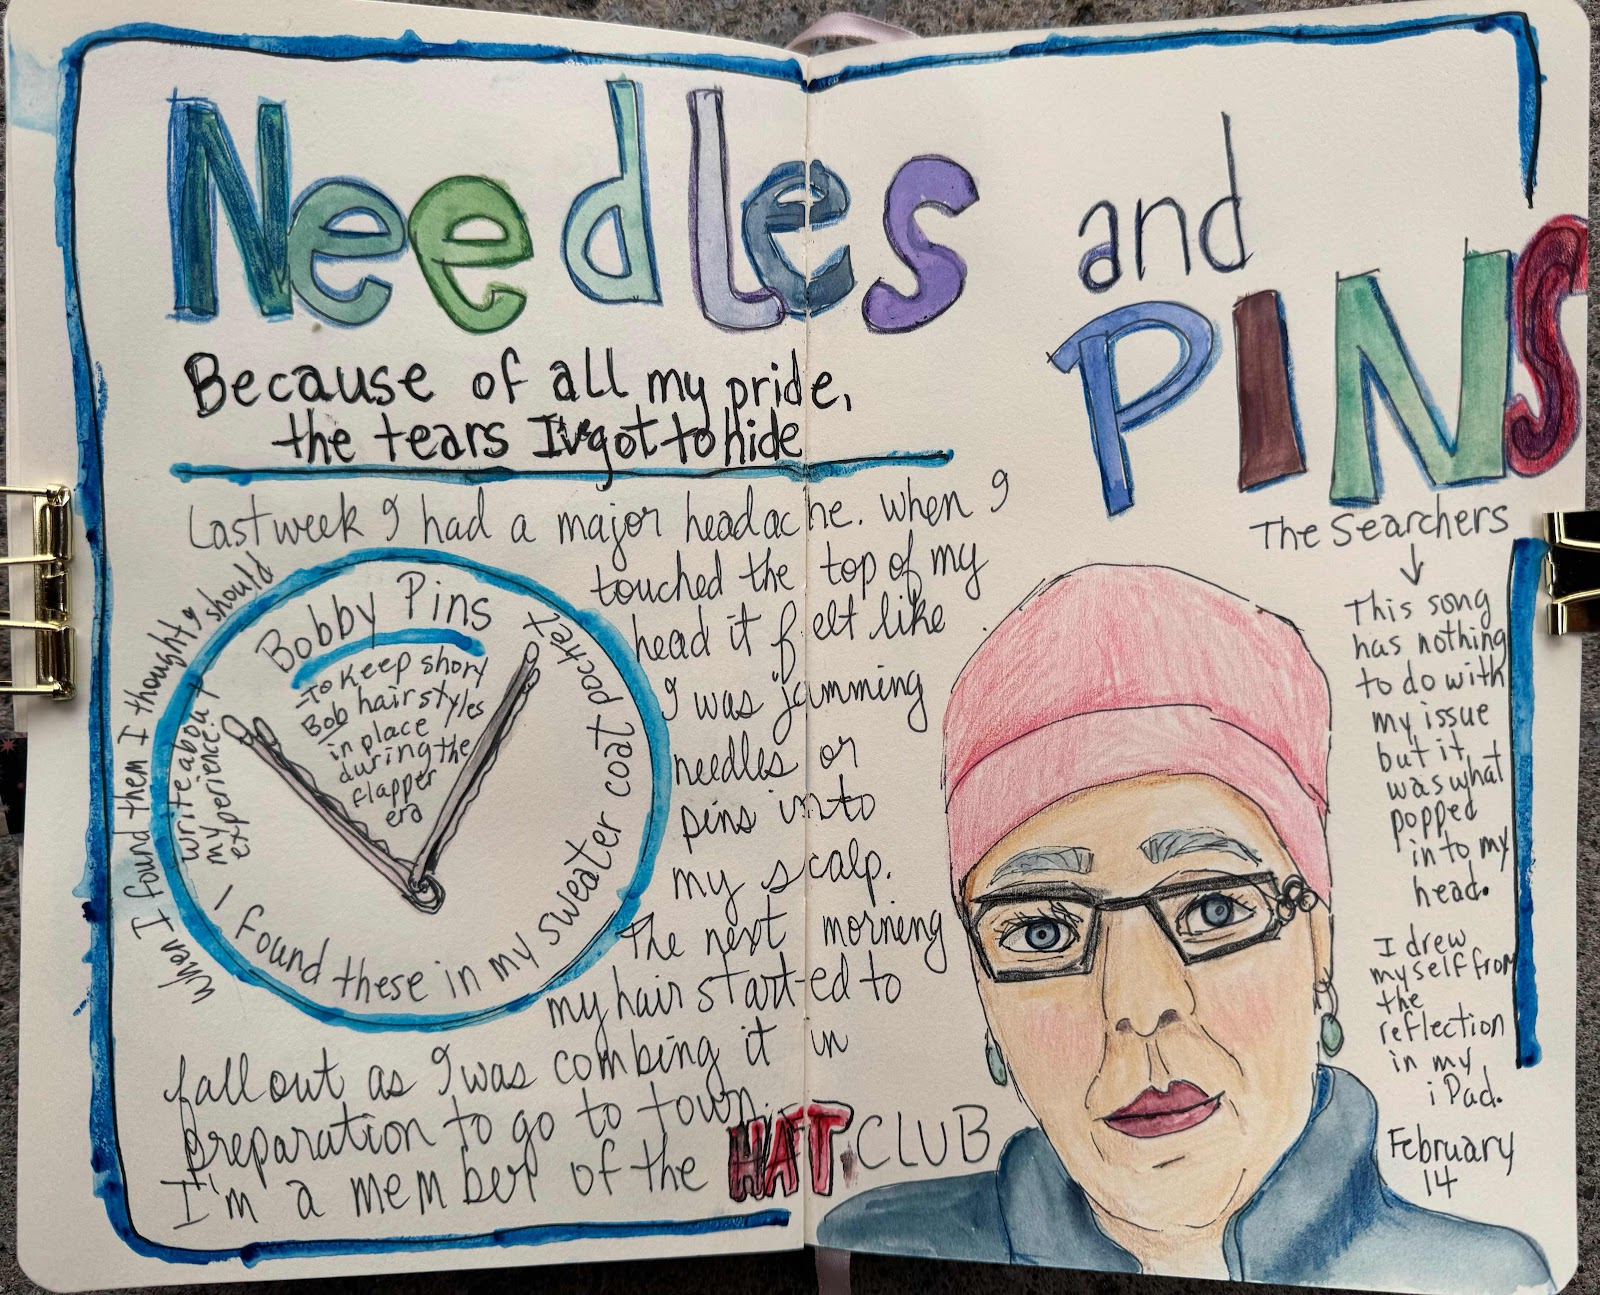 Needles and
PINS
The Searchers
Because of all my pride,
the tears I've got to hide
Last week I had a major headache. When I
touched the top of my
head it felt like
I was jamming
needles or
pins into
my scalp.
The next morning
my hair started to
fall out as I was combing it in
preparation to go to town.
I'm a member of the HAT CLUB
Bobby Pins
-To keep short
Bob hairstyles
in place
during the
flapper
era
I found these in my sweater coat pocket
When I found them I thought I should
write about
my experience
This song
has nothing
to do with
my issue
but it
was what
popped
in to my
head.
I drew
myself from
the
reflection
in my
iPad.
February
14